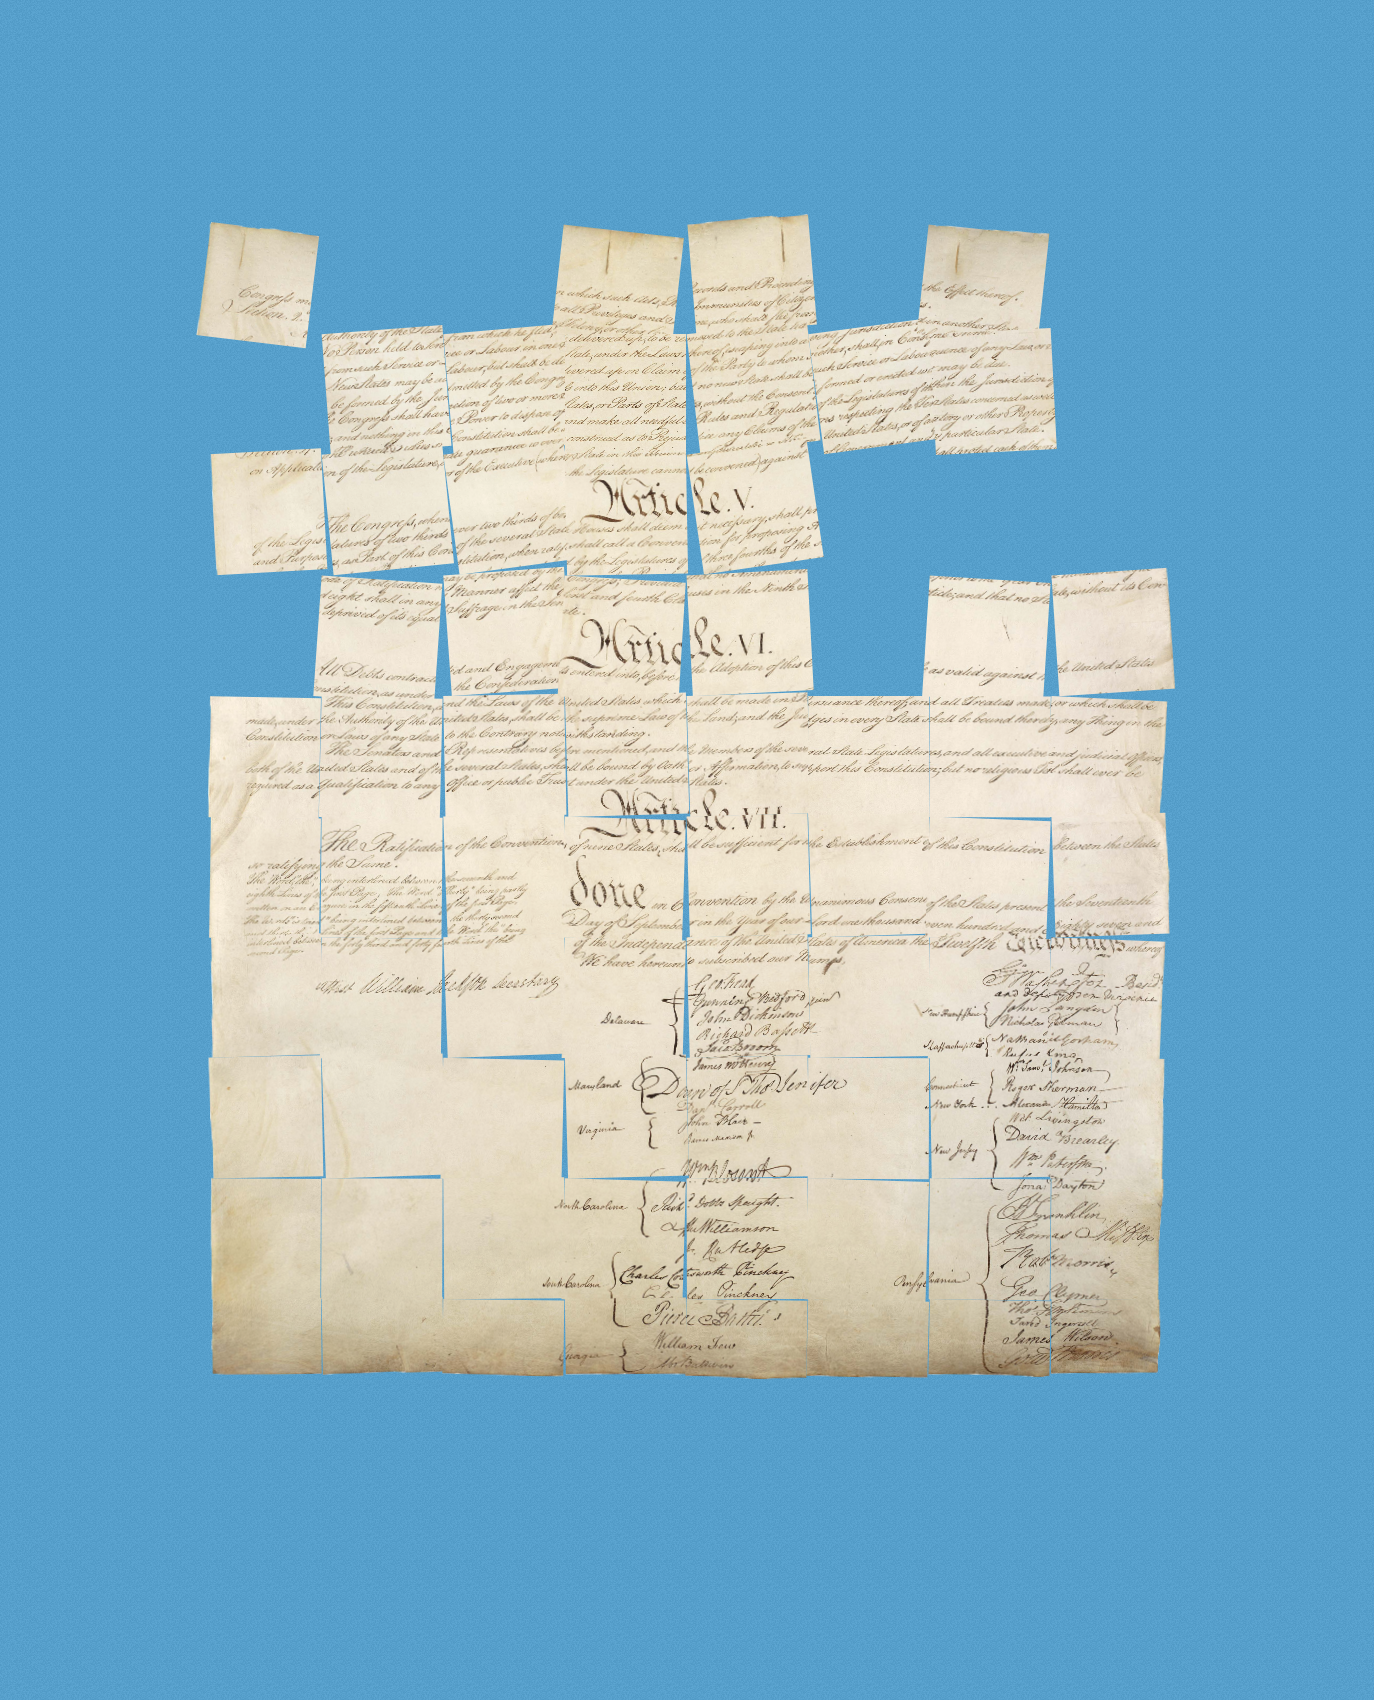 Congress m
Section. 2.
n which such Acts, Re cords and Proceeding the Effect thereof.
all Privileges and Immunities of Citizen s.
Felony, or other who shall flee from in another State
delivered up, to be removed to the State
uthority of the State from which he fled,
No Person held to Serv ice or Labour in one State, under the Laws thereof, escaping into another, shall, in
from such Service or Labour, but shall be delivered up on Claim of the Party to whom such Service or Labour may be due.
New States may be admitted by the Congress into this Union; but no new State shall be formed or erected within the Jurisdiction of
be formed by the Junction of two or more States, or Parts of States, without the Consent of the Legislatures of the States concerned as well
The Congress shall have Power to dispose of and make all needful Rules and Regulations respecting the Territory or other Property
and nothing in this Constitution shall be construed as to Prejudice any Claims of the United States, or of any particular State.
guarantee to every State in this Union
on Application of the Legislature, or of the Executive (when the Legislature cannot be convened) against
Article. V.
The Congress, whenever two thirds of both Houses shall deem it necessary, shall pr
of the Legislatures of two thirds of the several States, shall call a Convention for proposing A
and Purposes, as Part of this Constitution, when ratified by the Legislatures of three fourths of the s
of Ratification may be proposed by the Congress; Provided
eight shall in any Manner affect the first and fourth Clauses in the Ninth S ticle; and that no State, without its Con
deprived of its equal Suffrage in the Senate.
Article. VI.
All Debts contracted and Engagements entered into, before the Adoption of this C as valid against the United States
nstitution, as under the Confederation
This Constitution, and the Laws of the United States which shall be made in Pursuance thereof; and all Treaties made, or which shall be
made, under the Authority of the United States, shall be the supreme Law of the Land; and the Judges in every State shall be bound thereby, any Thing in the
Constitution or Laws of any State to the Contrary notwithstanding.
The Senators and Representatives before mentioned, and the Members of the several State Legislatures, and all executive and judicial Officers,
both of the United States and of the several States, shall be bound by Oath or Affirmation, to support this Constitution; but no religious Test shall ever be
required as a Qualification to any Office or public Trust under the United States.
Article. VII.
The Ratification of the Conventions of nine States, shall be sufficient for the Establishment of this Constitution between the States
so ratifying the Same.
The Word, "the," being interlined between the seventh and
eighth Lines of the first Page, The Word "Thirty" being partly
written on an Erazure in the fifteenth Line of the first Page,
The Words "is tried" being interlined between the thirty second
and thirty third Lines of the first Page and the Word "the" being
interlined between the forty third and forty fourth Lines of the
second Page.
done in Convention by the Unanimous Consent of the States present the Seventeenth
Day of September in the Year of our Lord one thousand seven hundred and Eighty seven and
of the Independance of the United States of America the Twelfth In witness whereof
We have hereunto subscribed our Names,
Attest William Jackson Secretary
Go: Washington Presidt
and deputy from Virginia
Delaware
Geo: Read
Gunning Bedford jun
John Dickinson
Richard Bassett
Jaco: Broom
Maryland
James McHenry
Dan of St Thos Jenifer
Danl Carroll
Virginia
John Blair —
James Madison Jr.
North Carolina
Wm. Blount
Richd. Dobbs Spaight.
Hu Williamson
South Carolina
J. Rutledge
Charles Cotesworth Pinckney
Charles Pinckney
Pierce Butler.
Georgia
William Few
Abr Baldwin
New Hampshire
John Langdon
Nicholas Gilman
Massachusetts
Nathaniel Gorham
Rufus King
Connecticut
Wm. Saml. Johnson
Roger Sherman
New York
Alexander Hamilton
New Jersey
Wil: Livingston
David Brearley.
Wm. Paterson.
Jona: Dayton
Pensylvania
B Franklin
Thomas Mifflin
Robt Morris
Geo. Clymer
Thos. FitzSimons
Jared Ingersoll
James Wilson
Gouv Morris